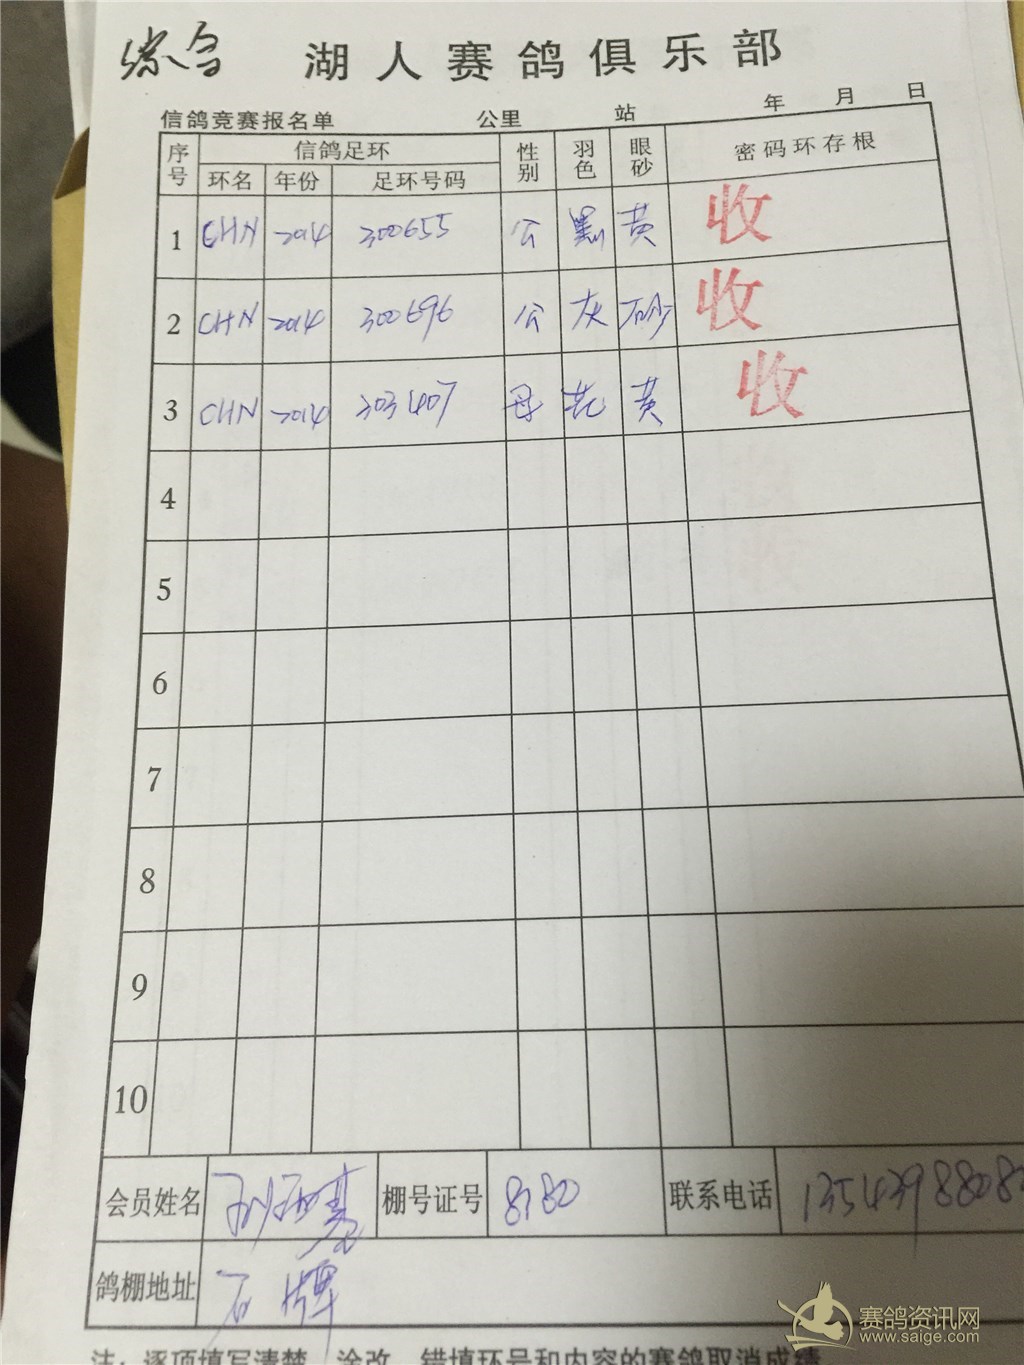 综合 湖人赛鸽俱乐部
信鸽竞赛报名单 公里 站 年 月 日
序号 信鸽足环 性别 羽色 眼砂 密码环存根
环名 年份 足环号码
1 CHN 2014 300655 公 黑 黄 收
2 CHN 2014 300696 公 灰 砂 收
3 CHN 2014 303407 母 花 黄 收
4
5
6
7
8
9
10
会员姓名 棚号证号 8180 联系电话
鸽棚地址 石牌
注：逐项填写清楚，涂改、错填环号和内容的赛鸽取消成绩
赛鸽资讯网
www.saige.com